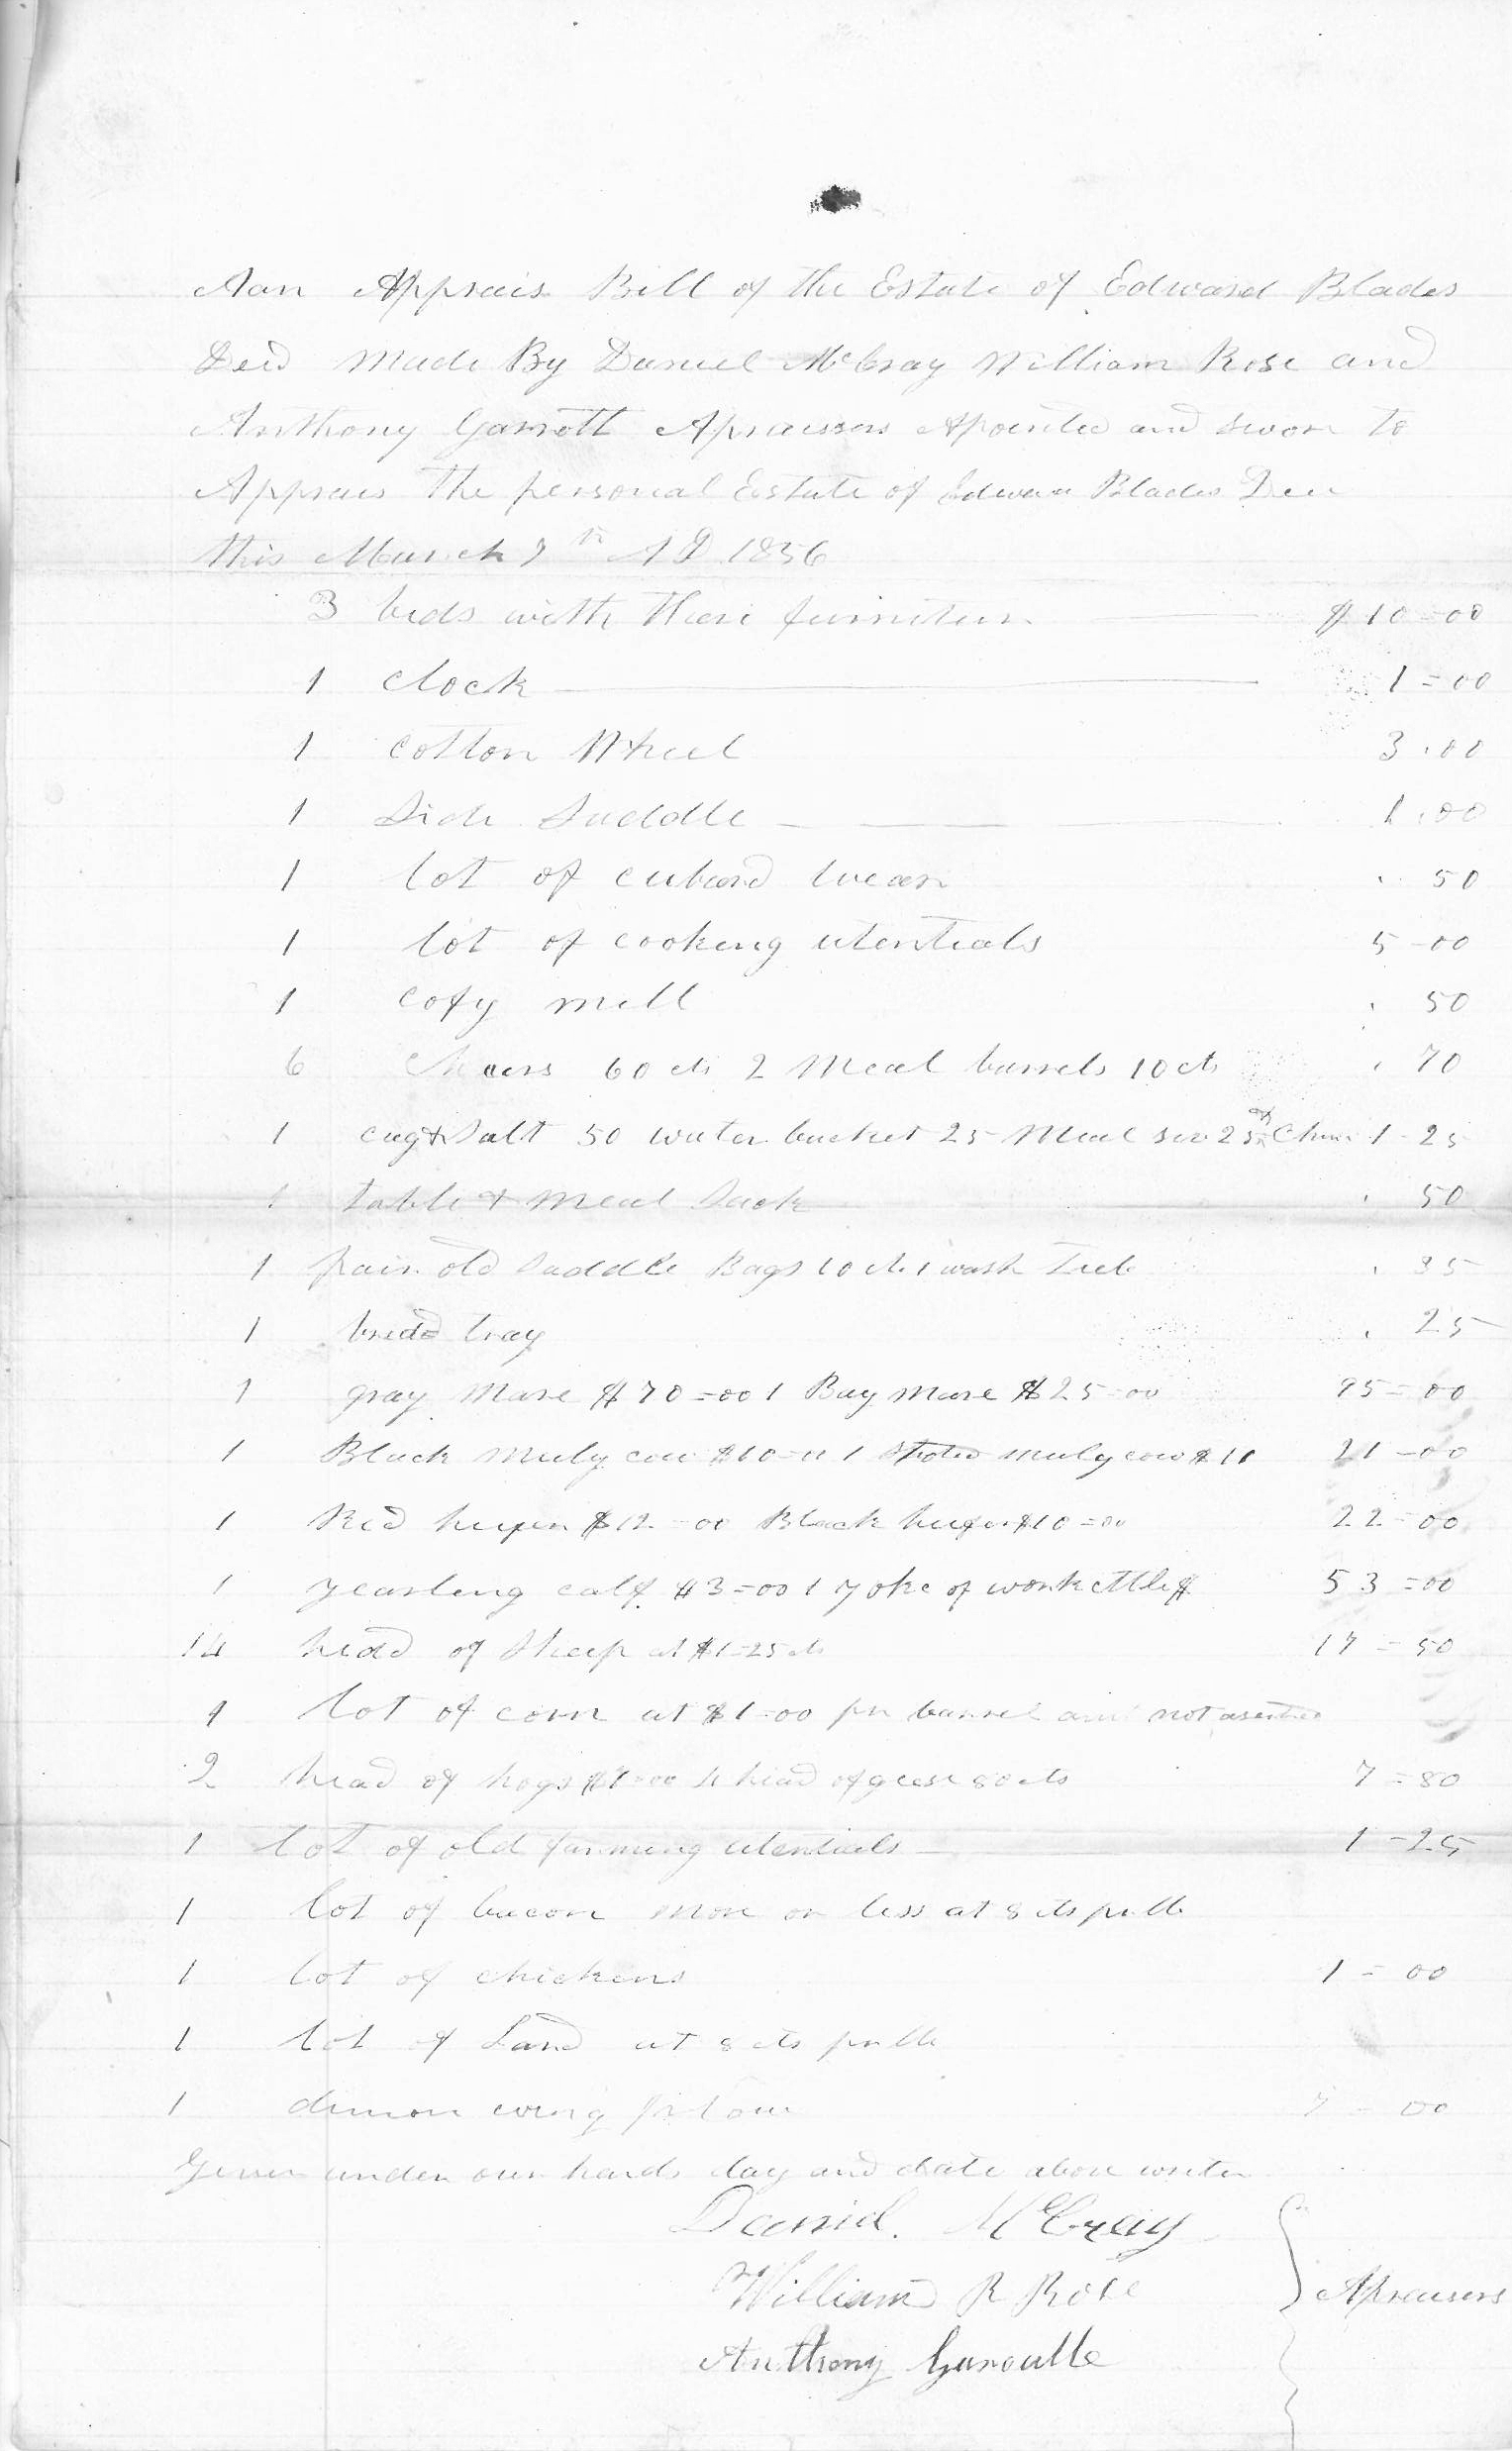 Aan Apprais Bill of the Estate of Edward Blades
Decd Made By Daniel McCray William Rose and
Anthony Garrott Apraisers Apointed and sworn to
Apprais the personal Estate of Edward Blades Dec
this March 7th AD 1856
3 beds with their furniture $10=00
1 clock 1=00
1 cotton Wheel 3.00
1 Side Saddle 1.00
1 lot of cubard wear 50
1 lot of cooking utentials 5-00
1 cofy mill 50
6 Chaers 60 cts 2 Meal barrels 10 cts 70
1 cag & Salt 50 water bucket 25 Meal sive 25 & Churn 1-25
1 table & meal Sack 50
1 pair old Saddle Bags 10 cts 1 wash Tub 35
1 bred tray 25
1 gray Mare $70=00 1 Bay mare $25=00 95=00
1 Black Muly cow $10=00 1 muly cow $11 21-00
1 Red heifer $12=00 Black heifer $10=00 22=00
1 yearling calf $3=00 1 yoke of work cttle $ 53=00
14 head of Sheep at $1=25 cts 17=50
1 lot of corn at $1=00 per barrel not
2 head of hogs $7=00 4 head of geese 80 cts 7=80
1 lot of old farming utentials 1-25
1 lot of bacon more or less at 8 cts pr lb
1 lot of chickens 1=00
1 lot of Lard at 8 cts pr lb
1 dimon wing plow 7=00
Given under our hands day and date above writen
Daniel McCray
William R Rose
Apraisers
Anthony Garoutte